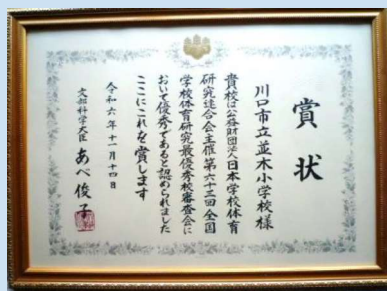 賞状
川口市立並木小学校様
貴校は公益財団法人日本学校体育
研究連合会主催第六十三回全国
学校体育研究最優秀校審査会に
おいて優秀であると認められました
ここにこれを賞します
令和六年十一月十四日
文部科学大臣 あべ俊子